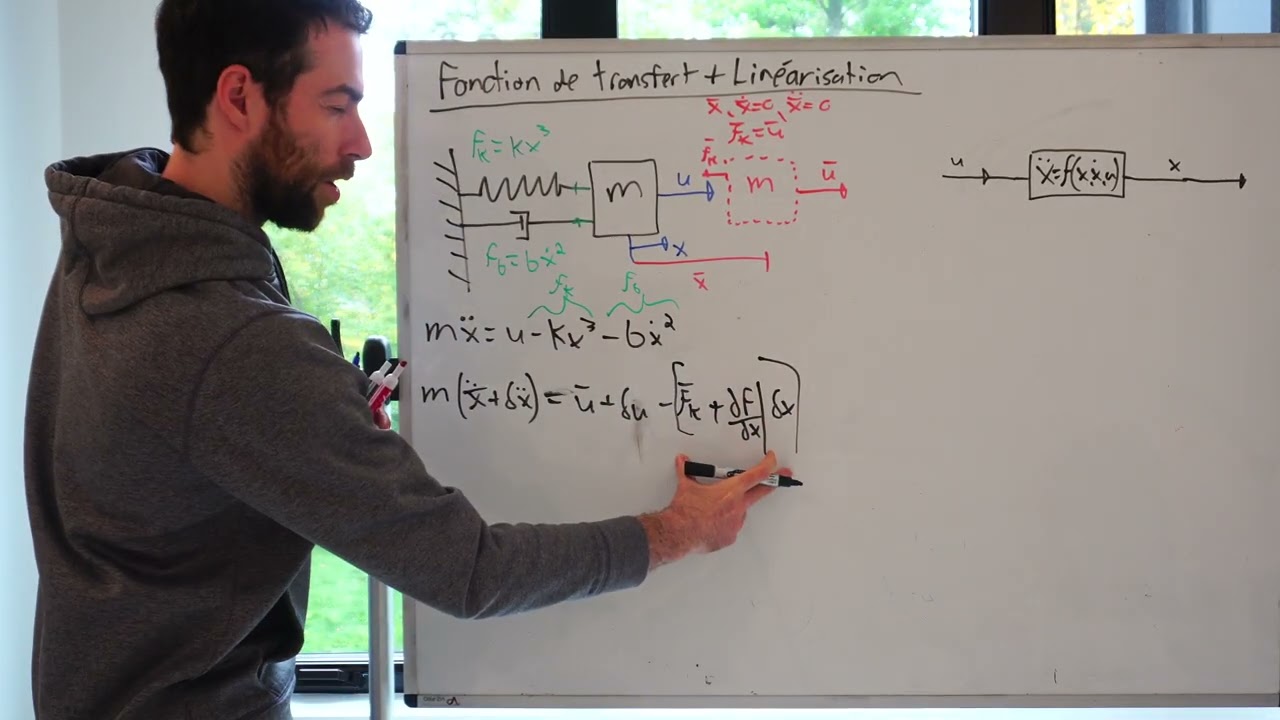 Fonction de transfert + Linéarisation
x̄, ẋ=0, ẍ=0
F̄ₖ=ū
fₖ=kx³
f̄ₖ
m
u
m
ū
x
x̄
f_b=bẋ²
u
ẍ=f(x,ẋ,u)
x
fₖ
f_b
mẍ=u-kx³-bẋ²
m(ẍ̄+δẍ)=ū+δu-[f̄ₖ+∂f/∂x|δx]